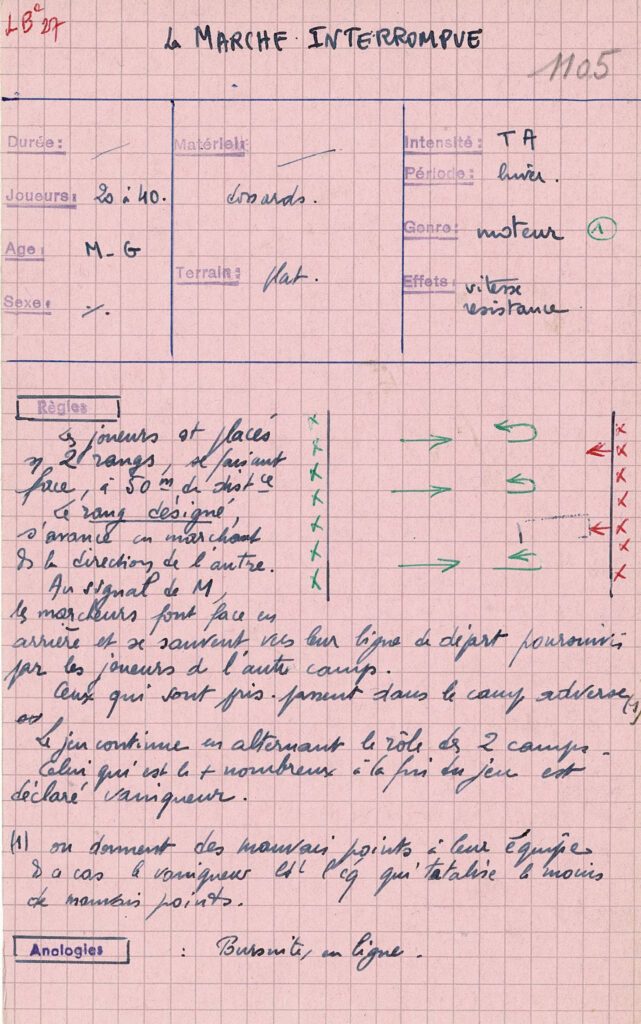 LBᵉ 27
La MARCHE INTERROMPUE
1105
Durée :
Joueurs : 20 à 40.
Age : M - G
Sexe :
Matériel :
dossards.
Terrain : plat.
Intensité : TA
Période : hiver.
Genre : moteur 1
Effets : vitesse
resistance
Règles
Les joueurs st placés
2 rangs, se faisant
face, à 50 m de distce
Le rang désigné,
s'avance en marchant
ds la direction de l'autre.
Au signal de M,
les marcheurs font face en
arrière et se sauvent vers leur ligne de départ poursuivis
par les joueurs de l'autre camp.
Ceux qui sont pris passent dans le camp adverse (1)
Le jeu continue en alternant le rôle des 2 camps.
Celui qui est le + nombreux à la fin du jeu est
déclaré vainqueur.
(1) ou donnent des mauvais points à leur équipe
ds ce cas le vainqueur est qui totalise le moins
de mauvais points.
Analogies : Poursuite, en ligne.